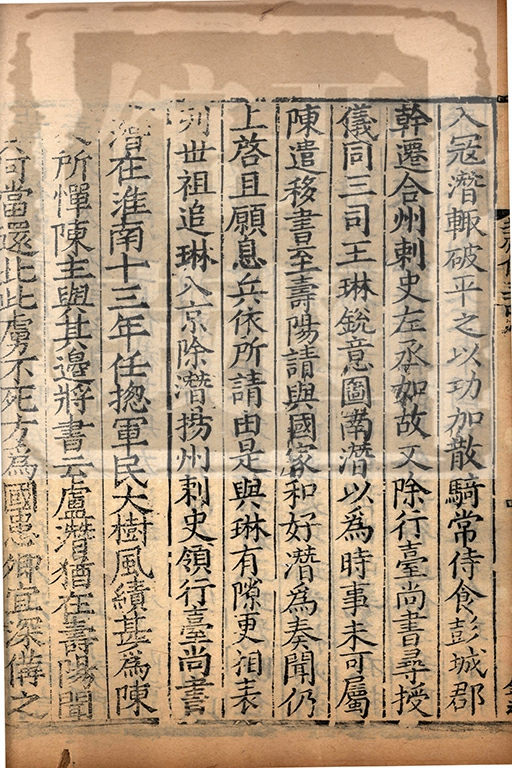 入寇潛輙破平之以功加散騎常侍食彭城郡
幹遷合州刺史左丞如故又除行臺尚書尋授
儀同三司王琳銳意圖南潛以爲時事未可屬
陳遣移書至壽陽請與國家和好潛爲奏聞仍
上啓且願息兵依所請由是與琳有隙更相表
列世祖追琳入京除潛揚州刺史領行臺尚書
潛在淮南十三年任揔軍民大樹風績甚爲陳
人所憚陳主與其邊將書云盧潛猶在壽陽聞
其何當還北此虜不死方爲國患卿宜深備之